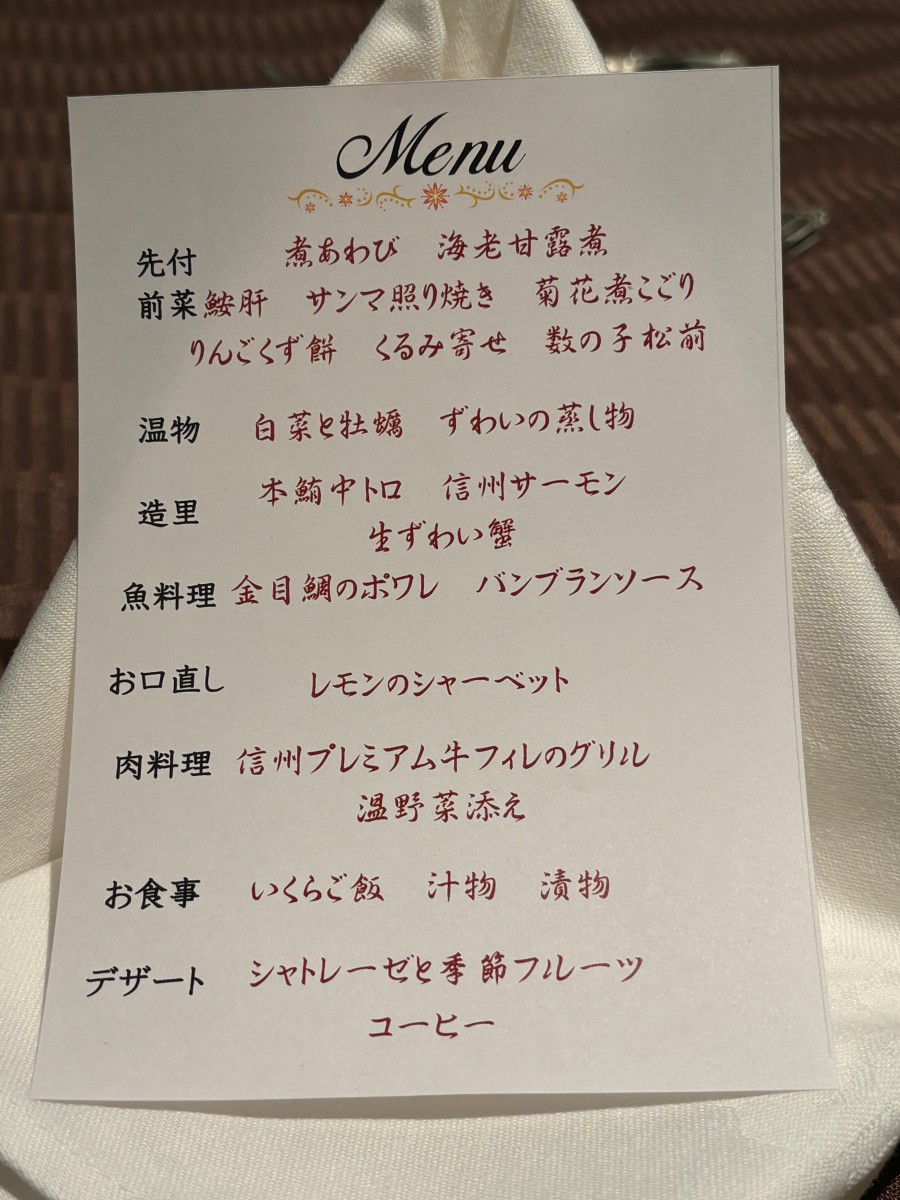 Menu
先付　煮あわび　海老甘露煮
前菜　鮟肝　サンマ照り焼き　菊花煮こごり
りんごくず餅　くるみ寄せ　数の子松前
温物　白菜と牡蠣　ずわいの蒸し物
造里　本鮪中トロ　信州サーモン
生ずわい蟹
魚料理　金目鯛のポワレ　バンブランソース
お口直し　レモンのシャーベット
肉料理　信州プレミアム牛フィレのグリル
温野菜添え
お食事　いくらご飯　汁物　漬物
デザート　シャトレーゼと季節フルーツ
コーヒー